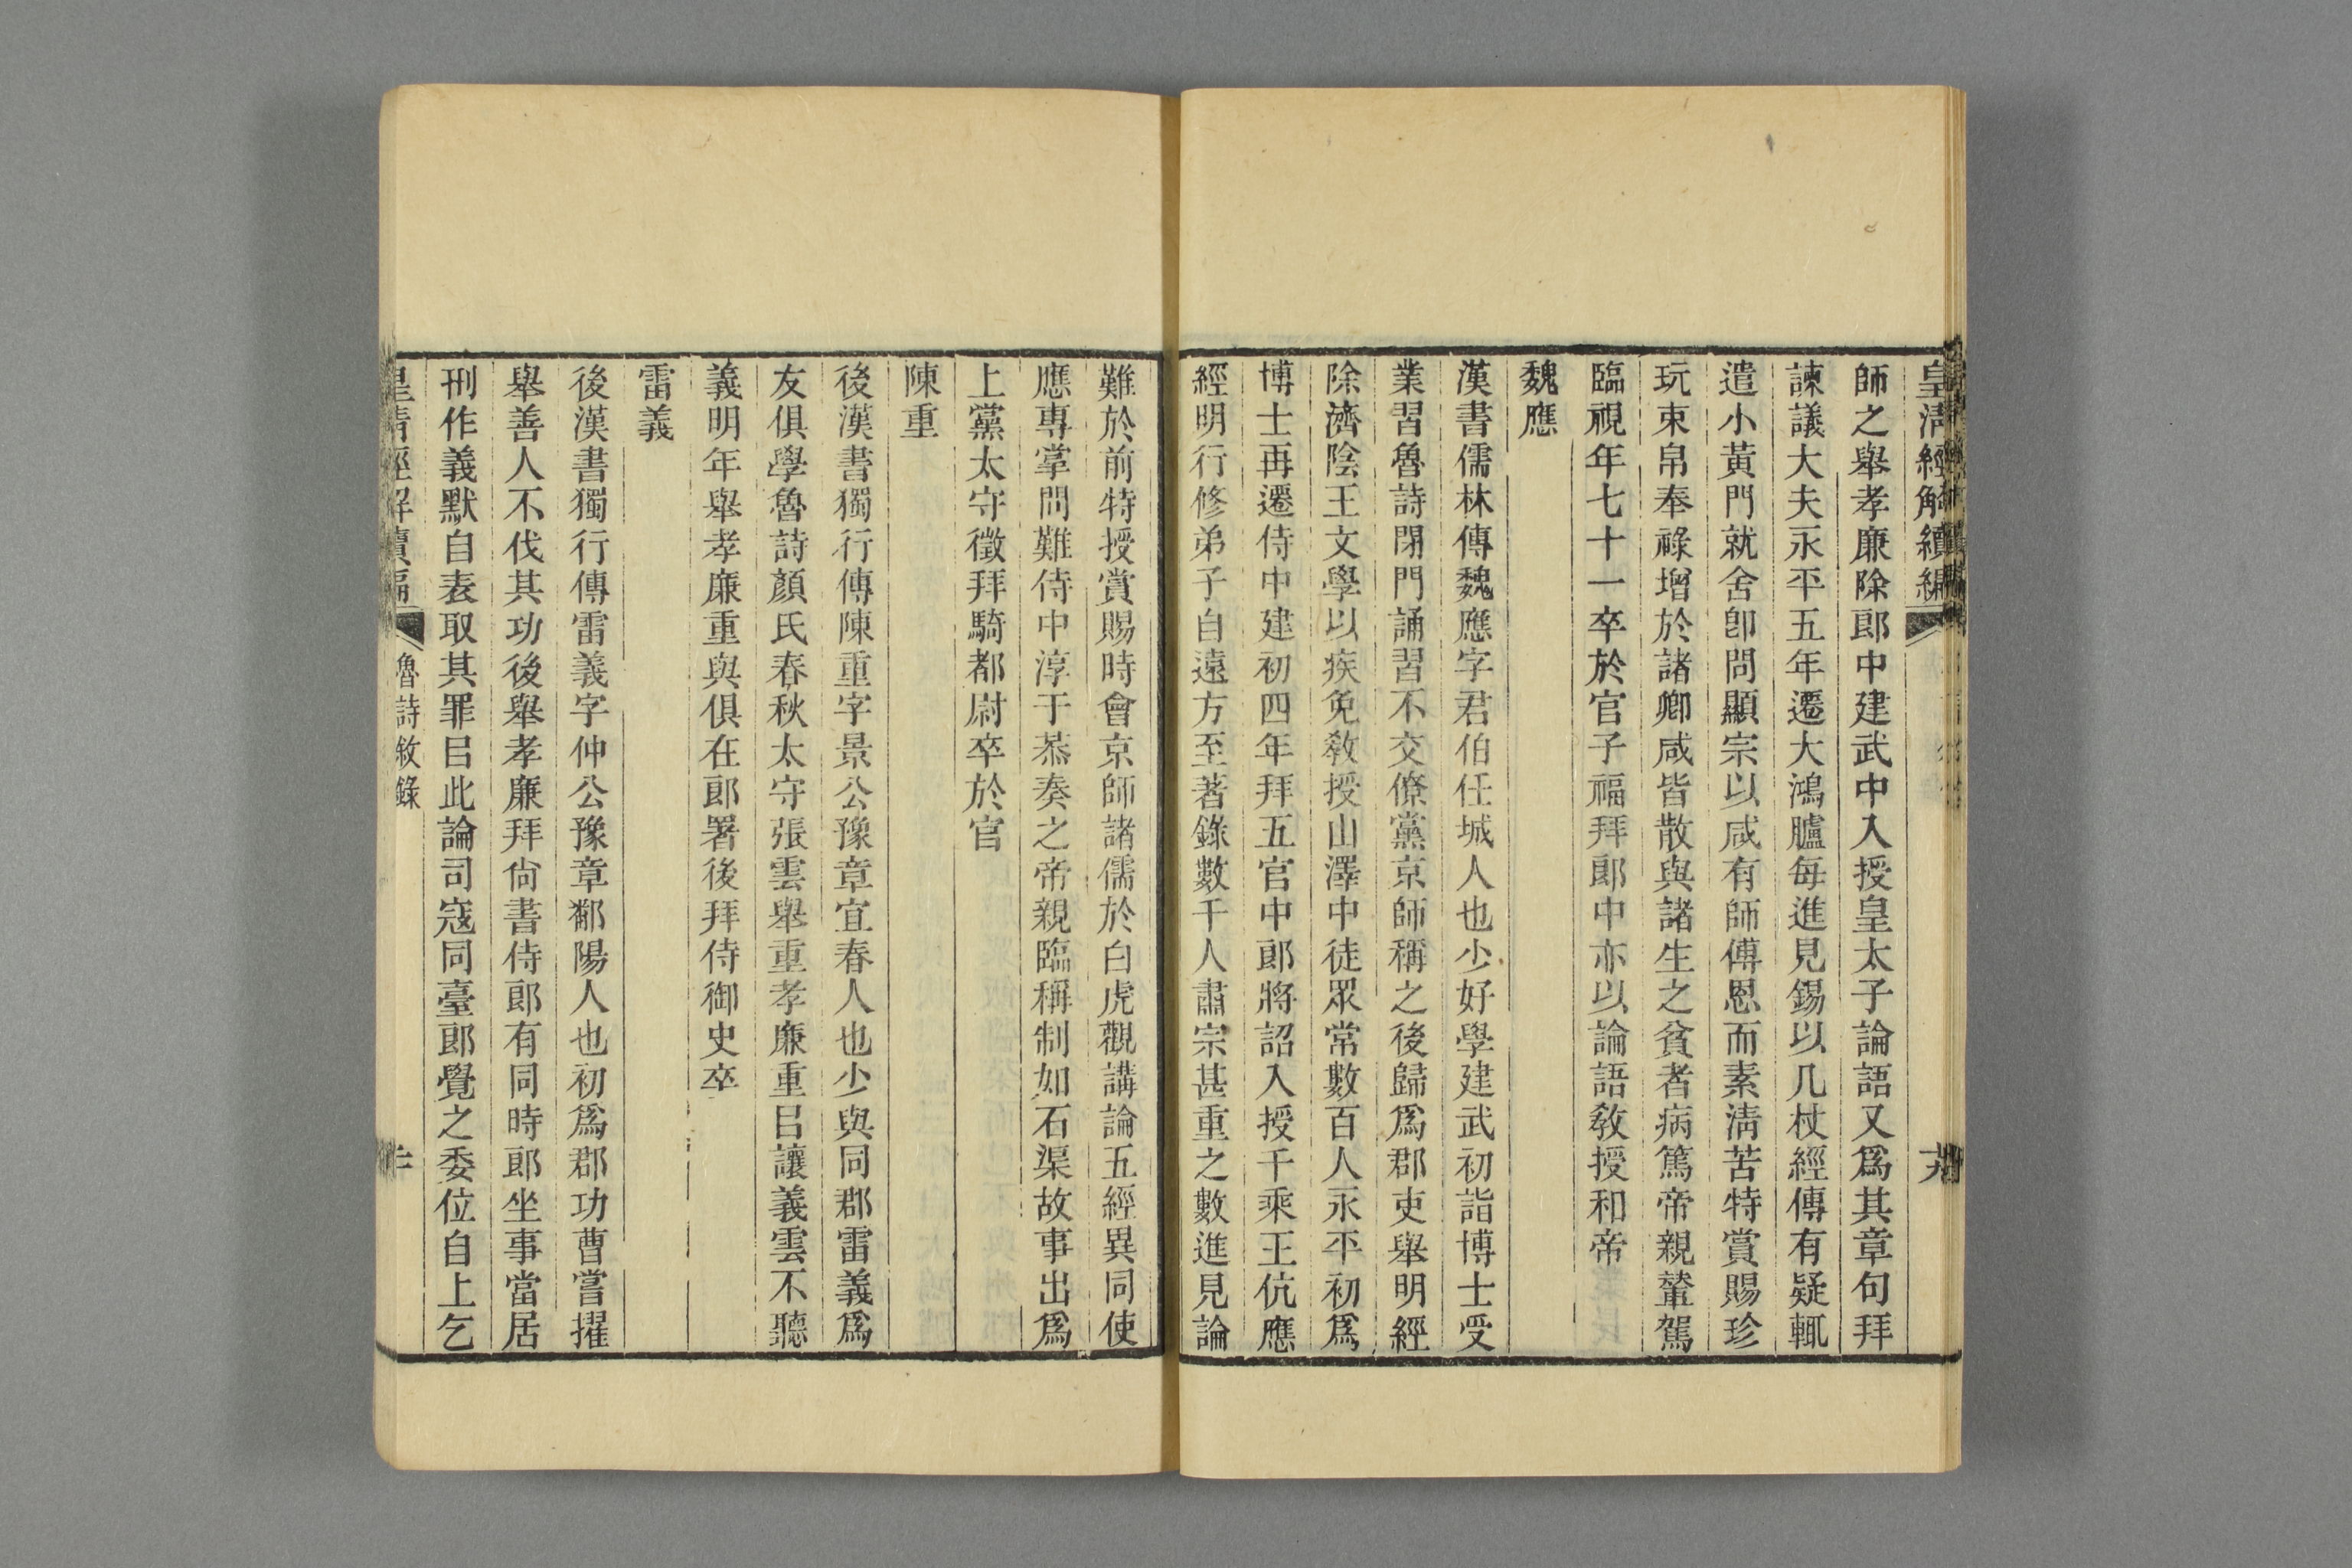 皇清經解續編
師之舉孝廉除郎中建武中入授皇太子論語又爲其章句拜
諫議大夫永平五年遷大鴻臚每進見錫以几杖經傳有疑輒
遣小黃門就舍卽問顯宗以咸有師傅恩而素淸苦特賞賜珍
玩束帛奉祿增於諸卿咸皆散與諸生之貧者病篤帝親輦駕
臨視年七十一卒於官子福拜郎中亦以論語敎授和帝
魏應
漢書儒林傳魏應字君伯任城人也少好學建武初詣博士受
業習魯詩閉門誦習不交僚黨京師稱之後歸爲郡吏舉明經
除濟陰王文學以疾免敎授山澤中徒眾常數百人永平初爲
博士再遷侍中建初四年拜五官中郎將詔入授千乘王伉應
經明行修弟子自遠方至著錄數千人肅宗甚重之數進見論
難於前特授賞賜時會京師諸儒於白虎觀講論五經異同使
應專掌問難侍中淳于恭奏之帝親臨稱制如石渠故事出爲
上黨太守徵拜騎都尉卒於官
陳重
後漢書獨行傳陳重字景公豫章宜春人也少與同郡雷義爲
友俱學魯詩顏氏春秋太守張雲舉重孝廉重㠯讓義雲不聽
義明年舉孝廉重與俱在郎署後拜侍御史卒
雷義
後漢書獨行傳雷義字仲公豫章鄱陽人也初爲郡功曹嘗擢
舉善人不伐其功後舉孝廉拜尙書侍郎有同時郎坐事當居
刑作義默自表取其罪㠯此論司寇同臺郎覺之委位自上乞
皇清經解續編
魯詩敘錄